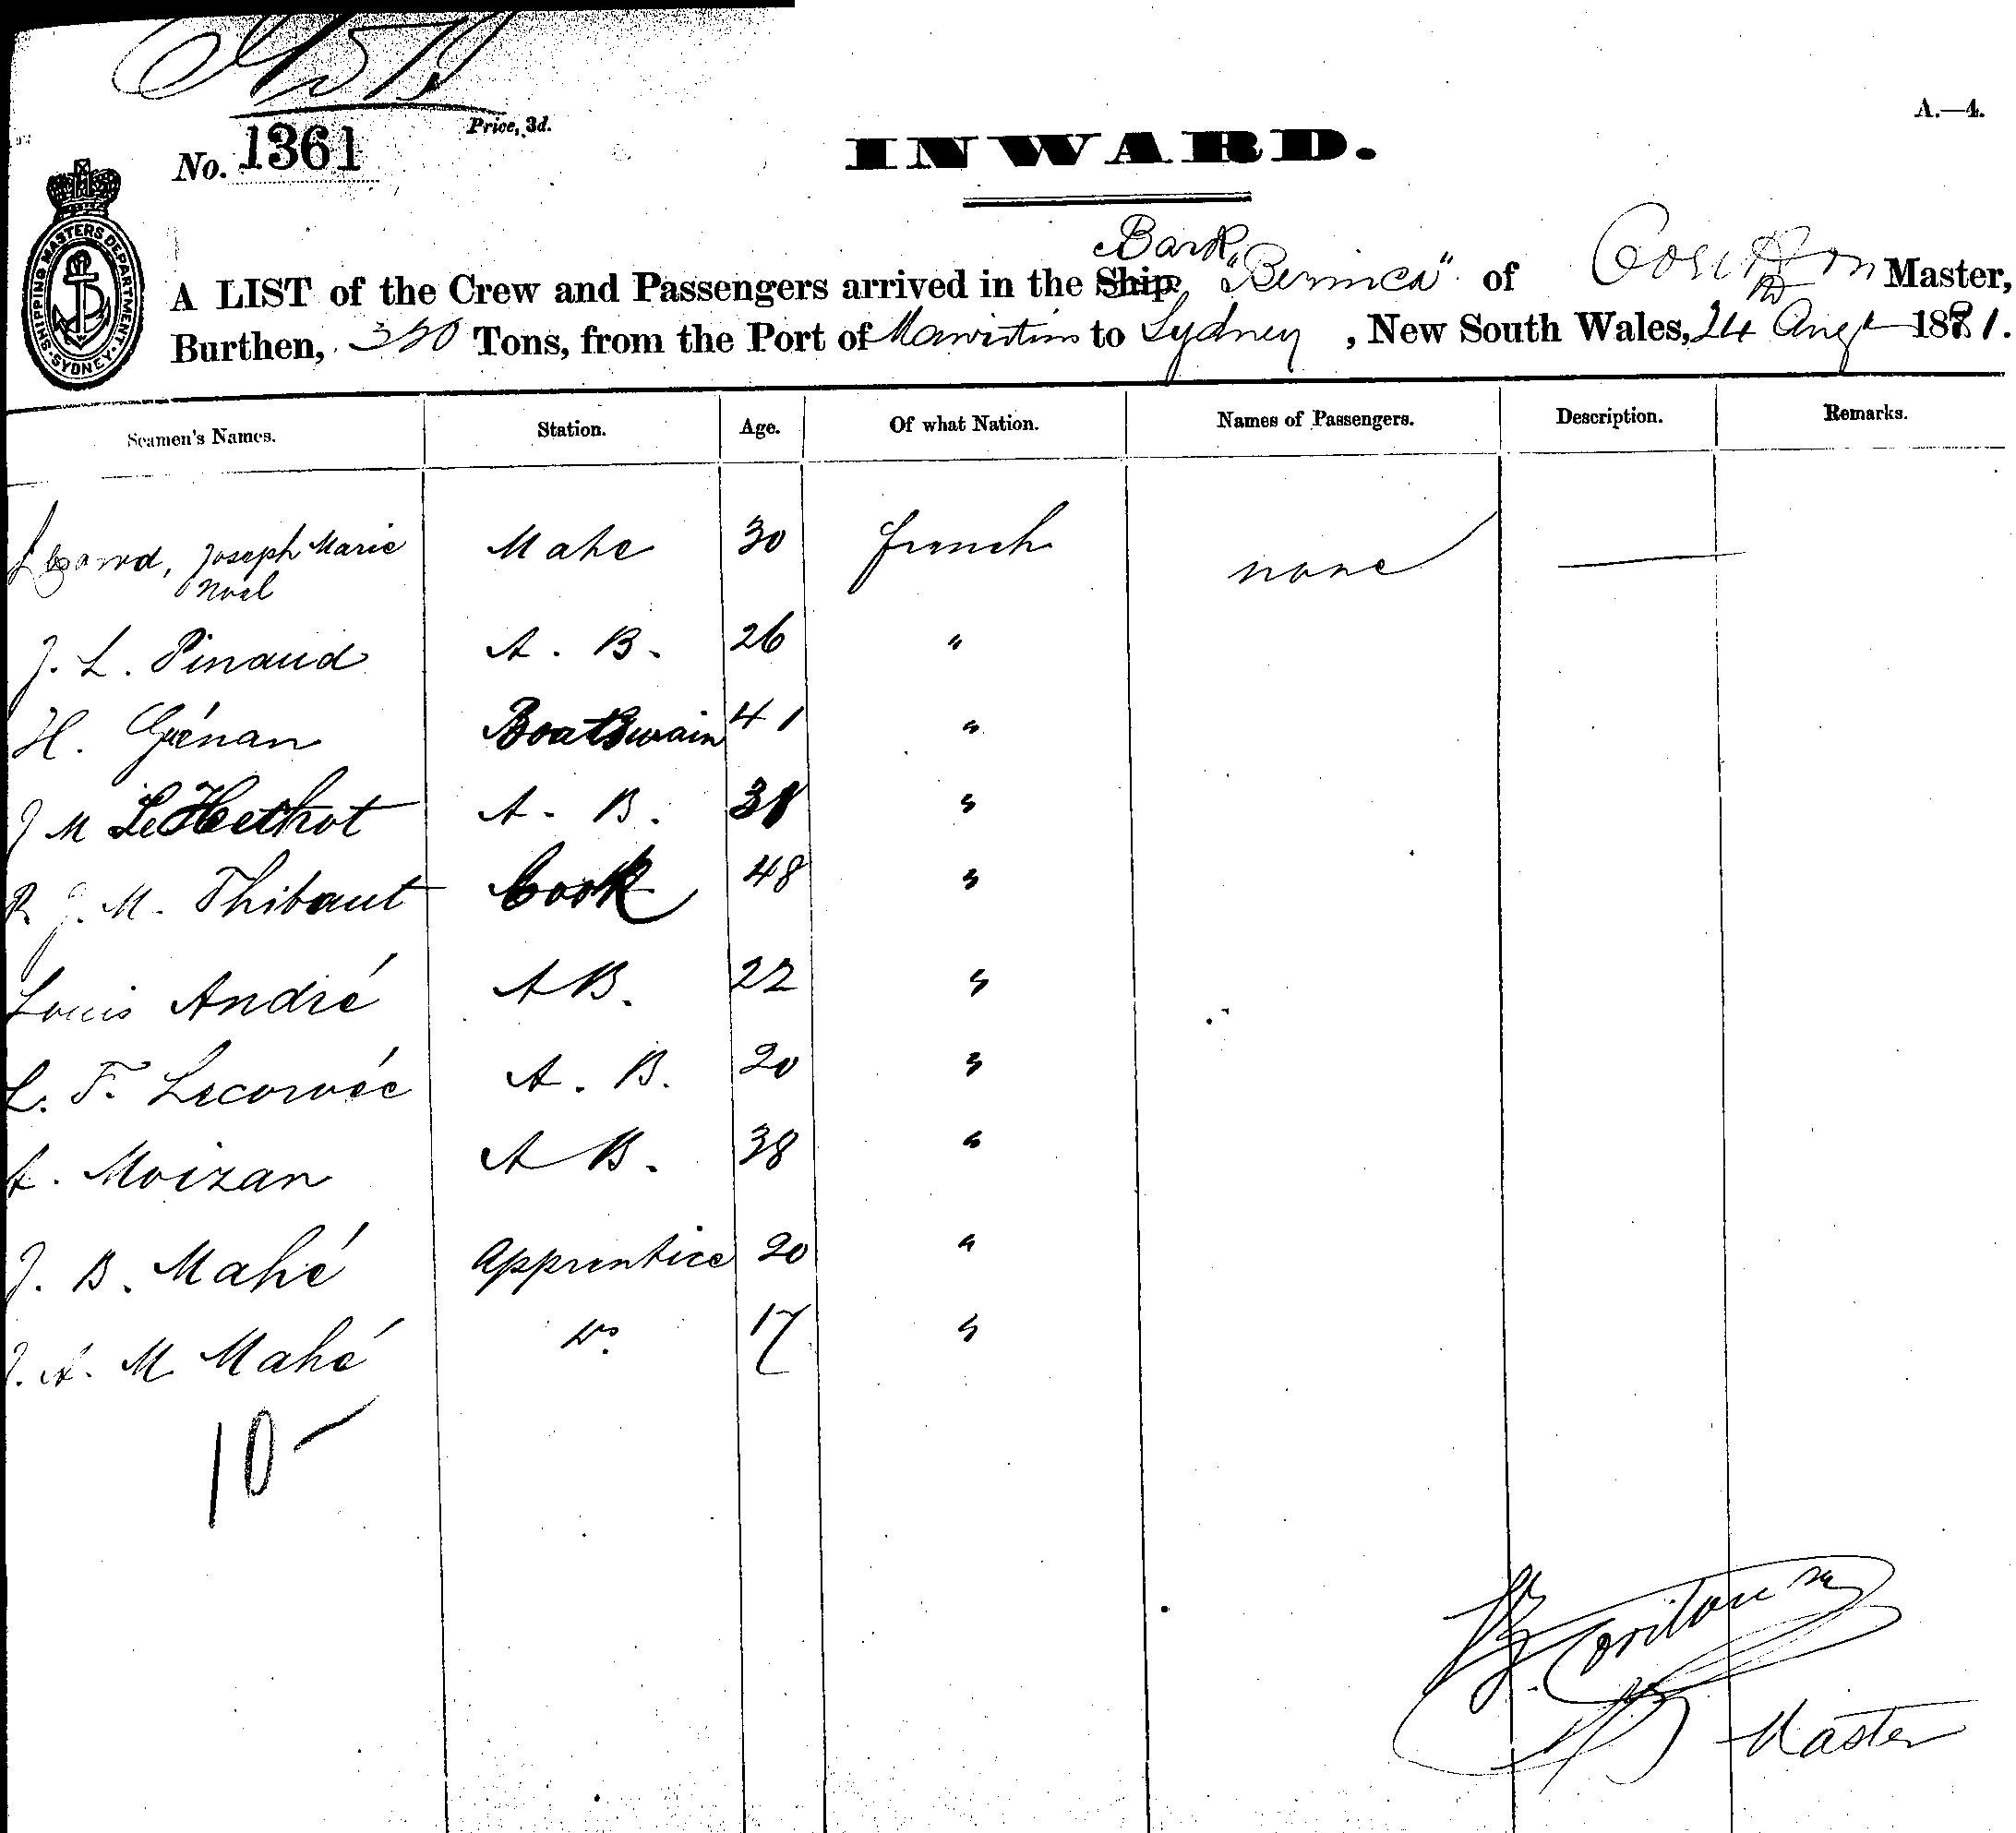 No. 1361
Price, 3d.
A.—4.
INWARD.
SHIPPING MASTERS DEPARTMENT. SYDNEY.
Bark
A LIST of the Crew and Passengers arrived in the Ship, of Master,
Burthen, 350 Tons, from the Port of Mauritius to Sydney, New South Wales, 24th Augt 1881.
Seamen's Names. Station. Age. Of what Nation. Names of Passengers. Description. Remarks.
Joseph Marie Mate 30 french none —
Noël
J. L. Pinaud A. B. 26 "
H. Guénan Boatswain 41 "
J M Le Hethot A. B. 38 "
R J. M. Thibaut Cook 48 "
Louis André A B. 22 "
L. F. Lecorvée A. B. 20 "
A. Moizan A B. 38 "
J. B. Mahé Apprentice 20 "
J. A. M. Mahé Do. 17 "
10 —
Coriton
Master